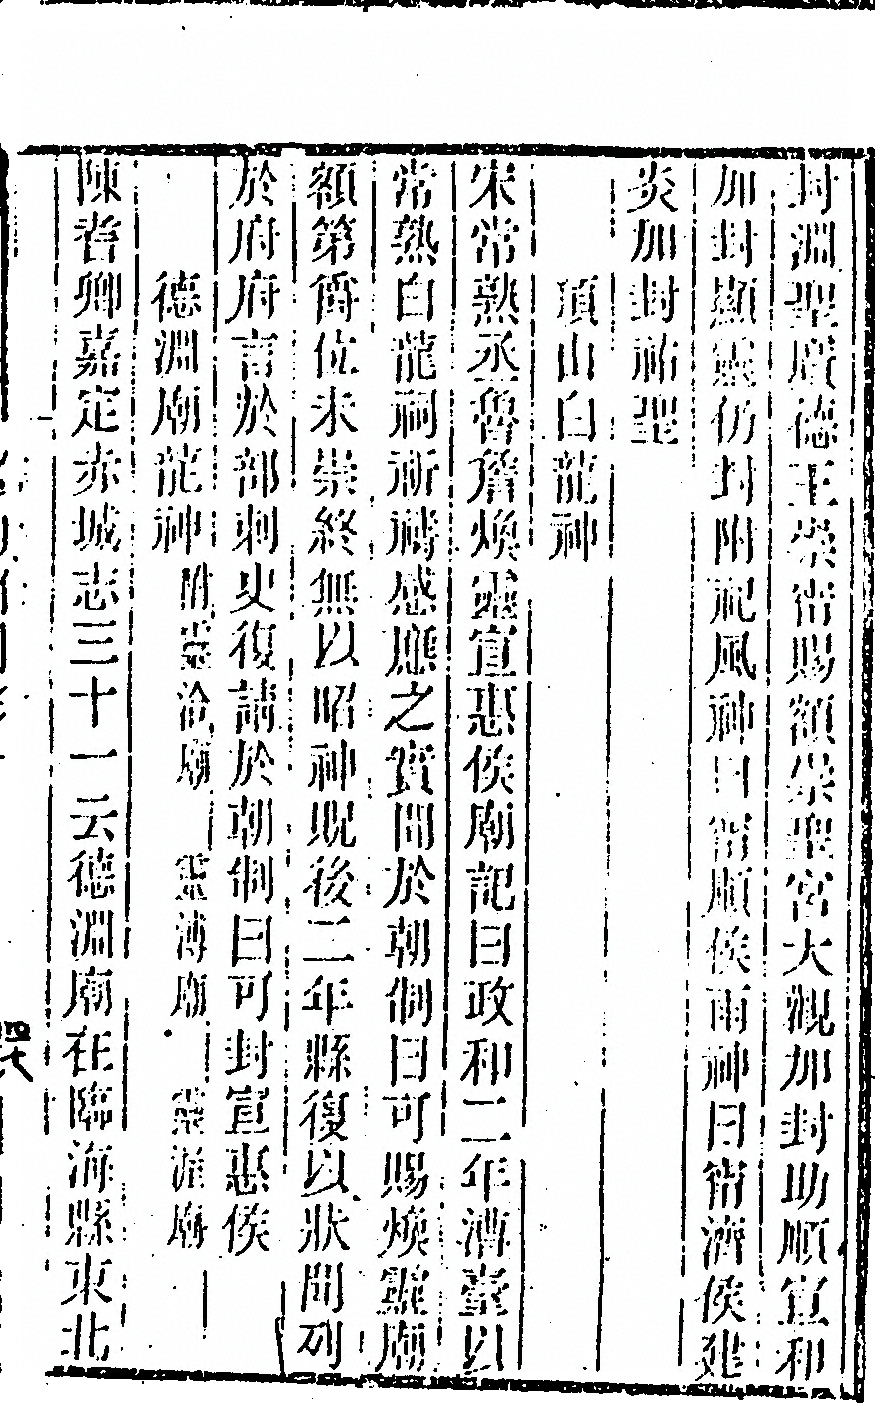 封淵聖廣德王崇甯賜額崇聖宮大觀加封助順宣和
加封顯靈仍封附祀風神曰甯順侯雨神曰甯濟侯建
炎加封祐聖
頂山白龍神
宋常熟丞魯詹煥靈宣惠侯廟記曰政和二年漕臺以
常熟白龍祠祈禱感應之實聞於朝制曰可賜煥靈廟
額第爵位未崇終無以昭神貺後二年縣復以狀聞列
於府府言於部刺史復請於朝制曰可封宣惠侯
德淵廟龍神 附靈洽廟 靈溥廟 靈漄廟
陳耆卿嘉定赤城志三十一云德淵廟在臨海縣東北